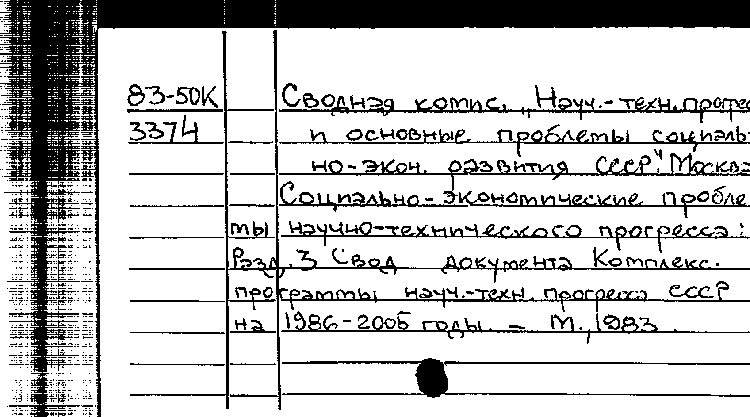 83-50К Сводная комис. „Науч.-техн. прогрес
3374 и основные проблемы социаль
но-экон. развития СССР". Москва
Социально-экономические пробле
мы научно-технического прогресса:
Разд. 3 Свод документа Комплекс.
программы науч.-техн. прогресса СССР
на 1986-2005 годы. – М., 1983.